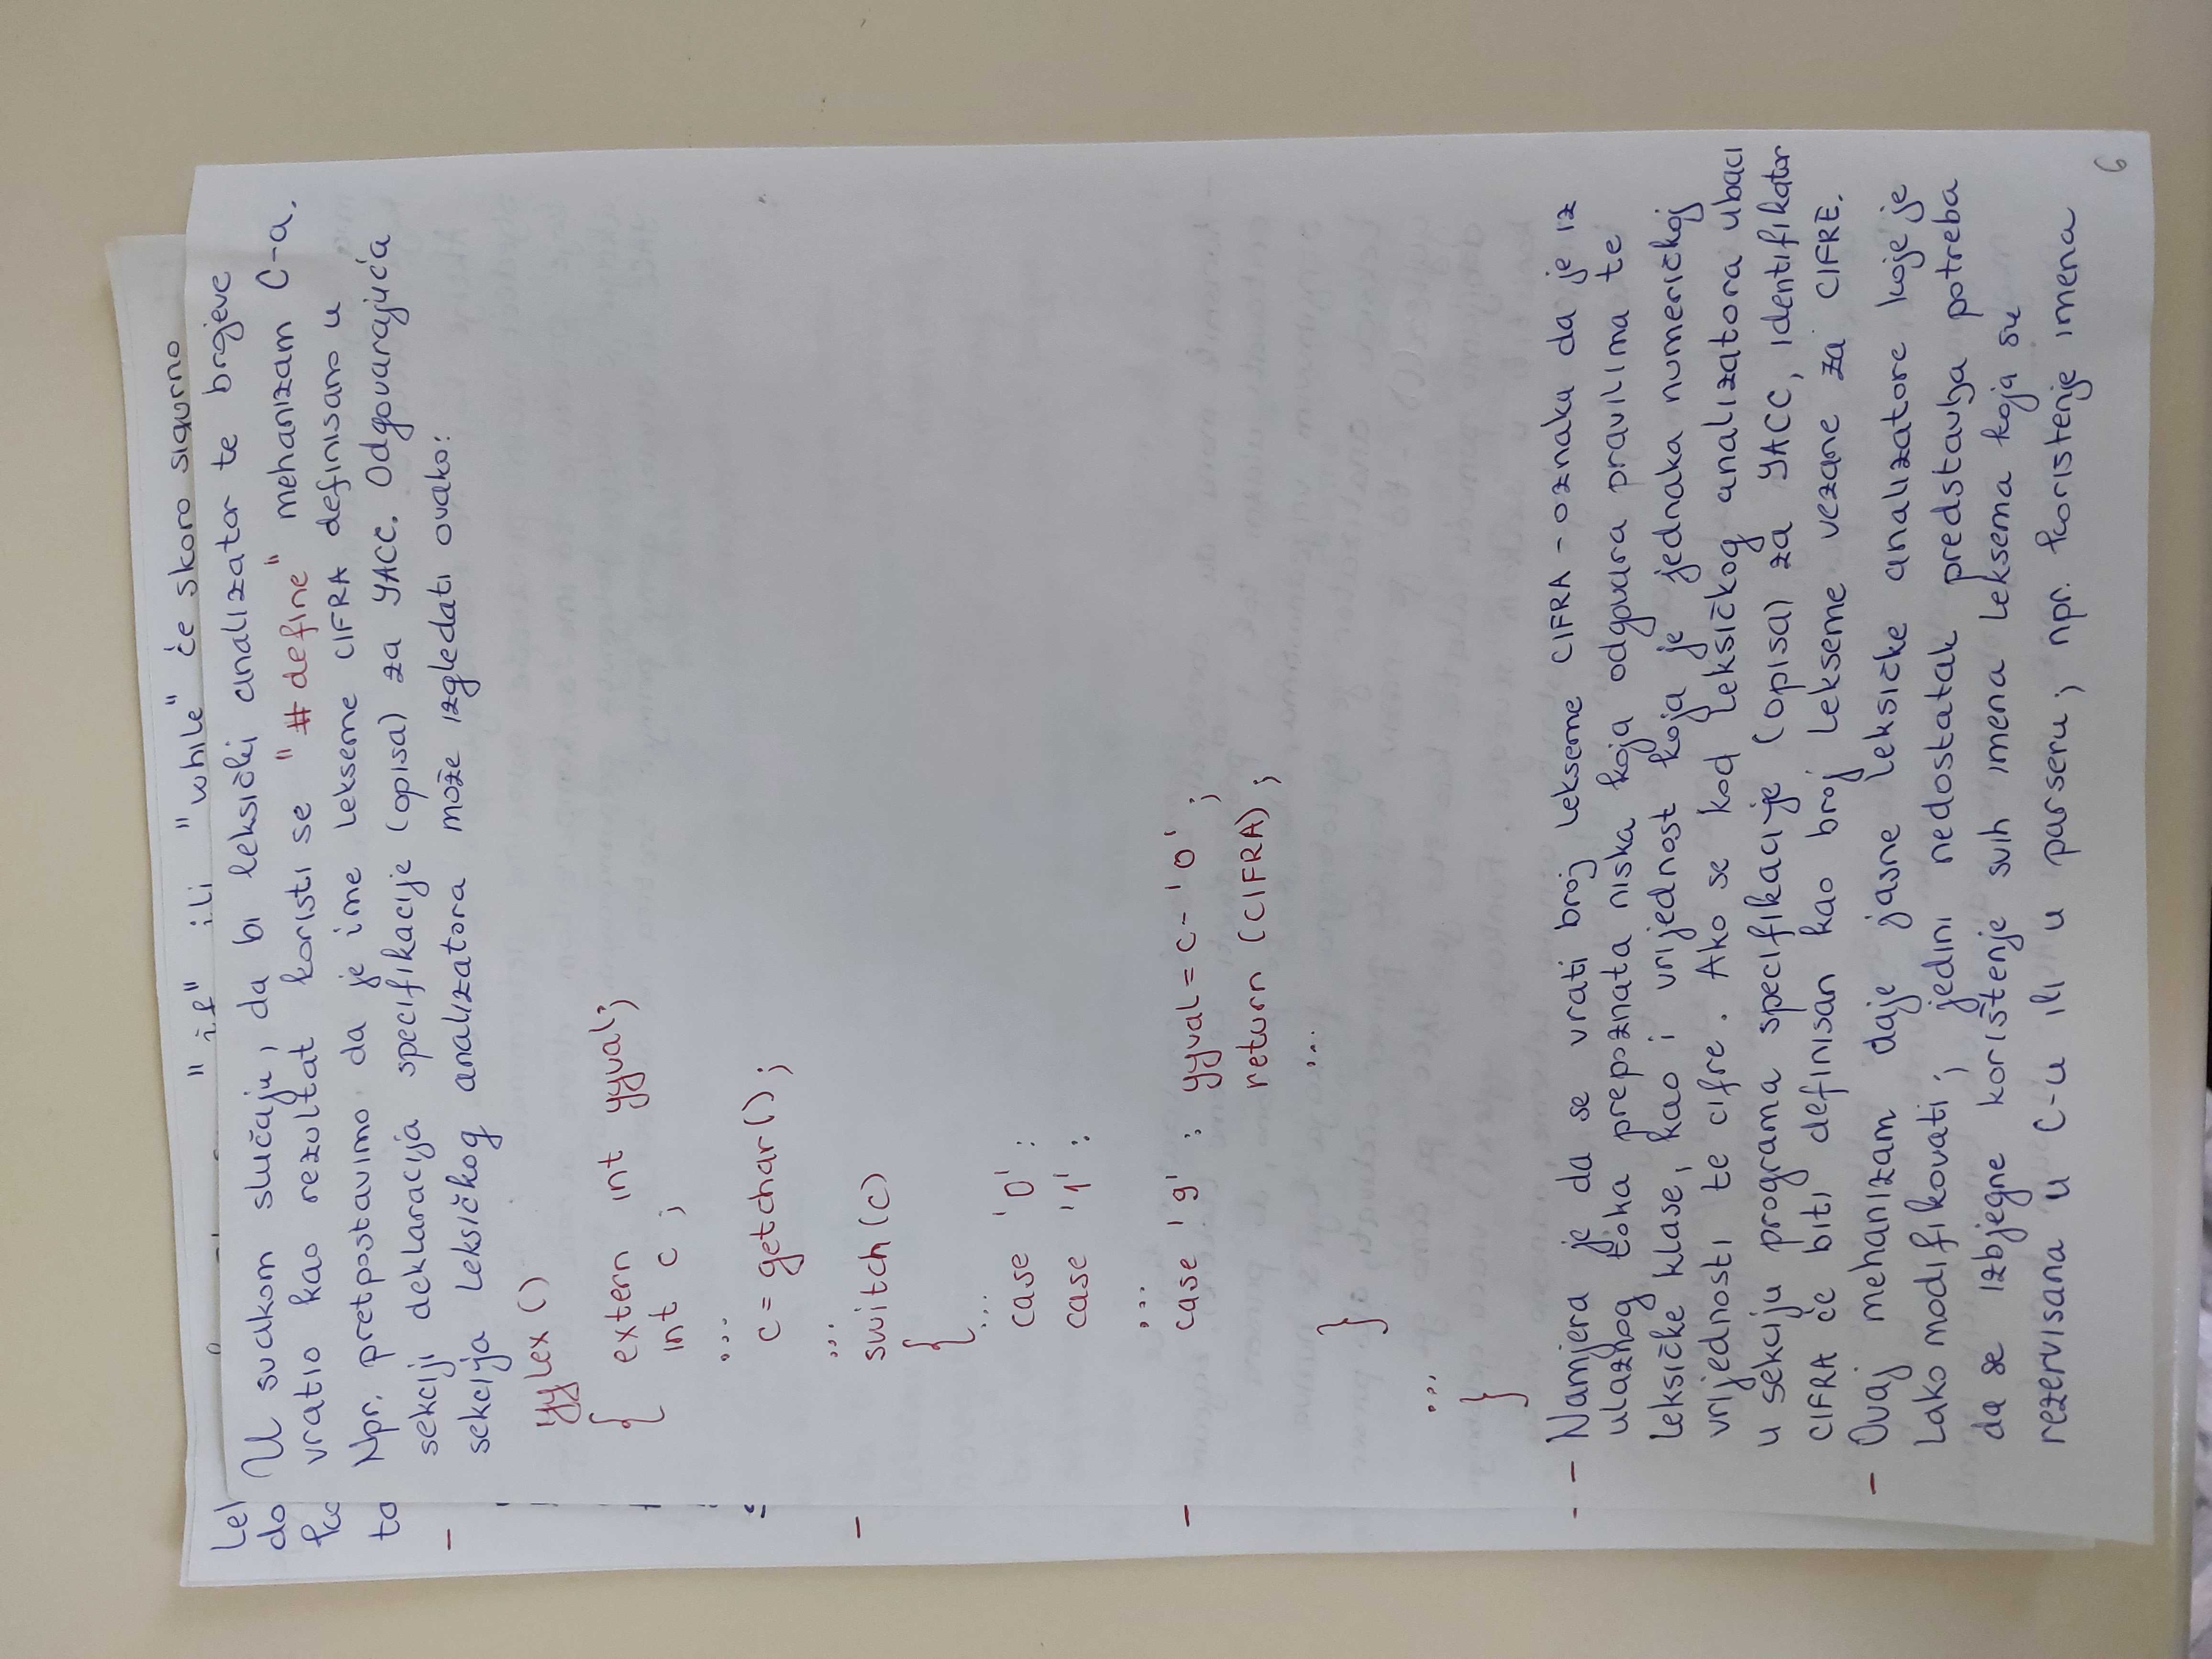 "if" ili "while" će skoro sigurno
do
to
U svakom slučaju, da bi leksički analizator te brojeve
vratio kao rezultat koristi se "#define" mehanizam C-a.
Npr. pretpostavimo da je ime lekseme CIFRA definisano u
sekciji deklaracija specifikacije (opisa) za YACC. Odgovarajuća
sekcija leksičkog analizatora može izgledati ovako:
yylex()
{ extern int yyval;
int c ;
...
c = getchar();
...
switch (c)
{
...
case '0' :
case '1' :
...
case '9' : yyval = c - '0' ;
return (CIFRA) ;
...
}
...
}
- - Namjera je da se vrati broj lekseme CIFRA - oznaku da je iz
ulaznog toka prepoznata niska koja odgovara pravilima te
leksičke klase, kao i vrijednost koja je jednaka numeričkoj
vrijednosti te cifre. Ako se kod leksičkog analizatora ubaci
u sekciju programa specifikacije (opisa) za YACC, identifikator
CIFRA će biti definisan kao broj lekseme vezane za CIFRE.
- Ovaj mehanizam daje jasne leksičke analizatore koje je
lako modifikovati; jedini nedostatak predstavlja potreba
da se izbjegne korištenje svih imena leksema koja su
rezervisana u C-u ili u parseru; npr. koristenje imena
6